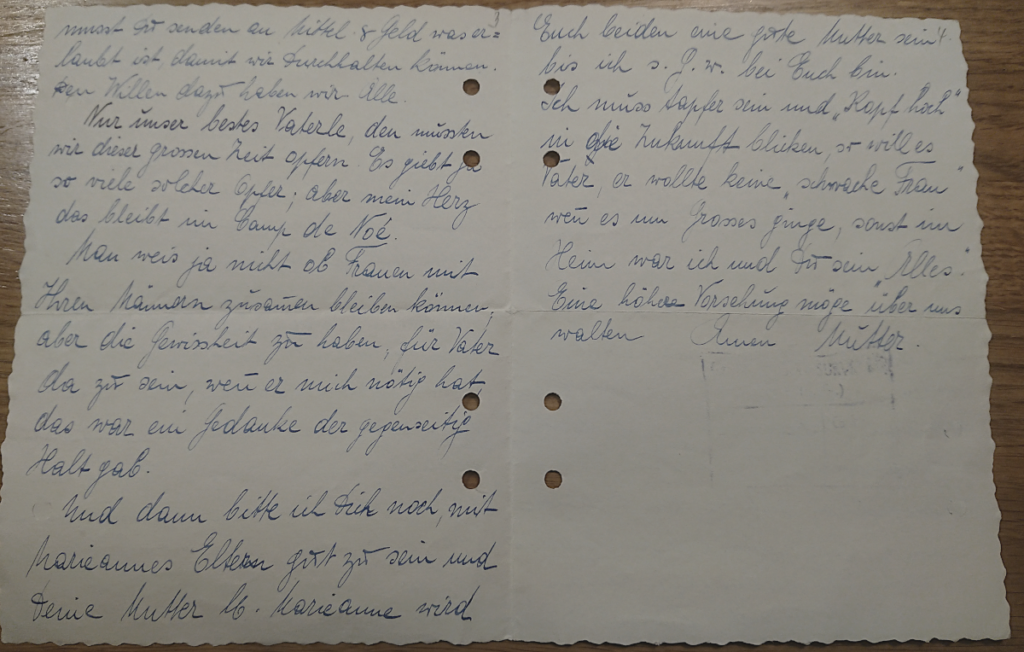 3
musst Du senden an Mittel & Geld was er=
laubt ist, damit wir Durchhalten können.
Den Willen dazu haben wir Alle.
Nur unser bestes Vaterle, den mussten
wir dieser grossen Zeit opfern. Es giebt ja
so viele solcher Opfer; aber mein Herz
das bleibt im Camp de Noé.
Man weis ja nicht ob Frauen mit
Ihren Männern zusamen bleiben können,
aber die Gewissheit zu haben, für Vater
da zu sein, weñ er mich nötig hat,
das war ein Gedanke der gegenseitig
Halt gab.
Und dann bitte ich Dich noch, mit
Mariannes Eltern gut zu sein und
Deine Mutter lb. Marieanne wird
4.
Euch beiden eine gute Mutter sein
bis ich s. G. w. bei Euch bin.
Ich muss tapfer sein und "Kopf hoch"
in die Zukunft blicken, so will es
Vater, er wollte keine "schwache Frau"
weñ es um Grosses ginge, sonst im
Heim war ich und Du sein "Alles."
Eine höhere Vorsehung möge über uns
walten Amen Mutter.